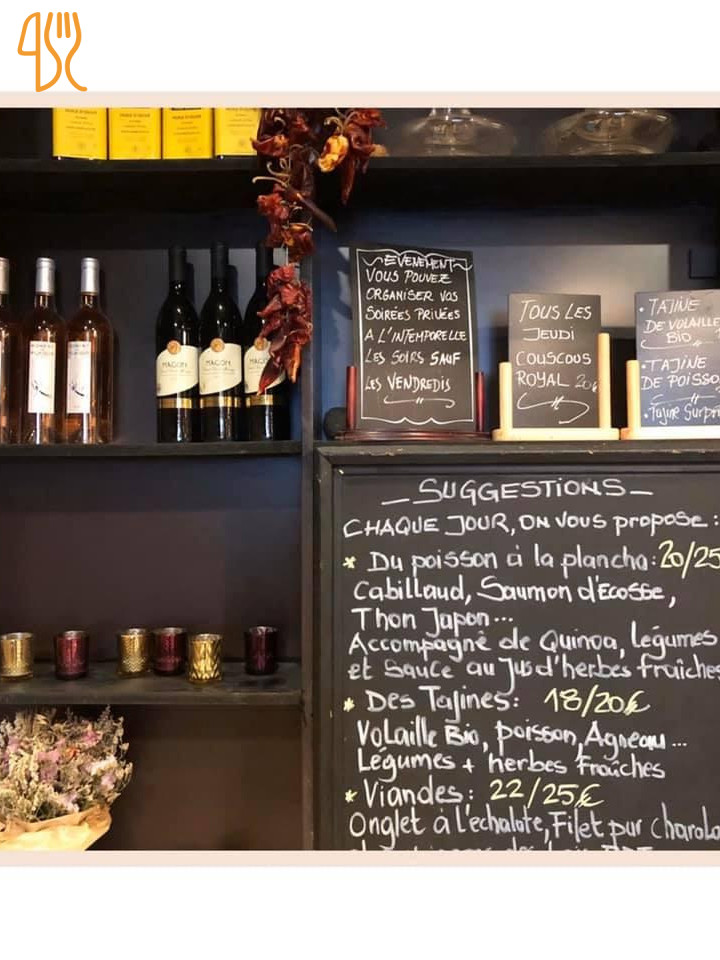 MACON
MACON
MACON
EVENEMENT
VOUS POUVEZ
ORGANISER VOS
SOIRÉES PRIVÉES
A L'INTEMPORELLE
LES SOIRS SAUF
LES VENDREDIS
TOUS LES
JEUDI
COUSCOUS
ROYAL 20€
• TAJINE
DE VOLAILLE
BIO
• TAJINE
DE POISSO
• Tajine Surpr
SUGGESTIONS
CHAQUE JOUR, ON VOUS propose :
* Du poisson à la plancha: 20/25
Cabillaud, Saumon d'Ecosse,
Thon Japon...
Accompagné de Quinoa, légumes
et Sauce au Jus d'herbes fraîches
* Des Tajines: 18/20€
Volaille Bio, poisson, Agneau...
Légumes + herbes Fraîches
* Viandes: 22/25€
Onglet à l'échalote, Filet pur charola